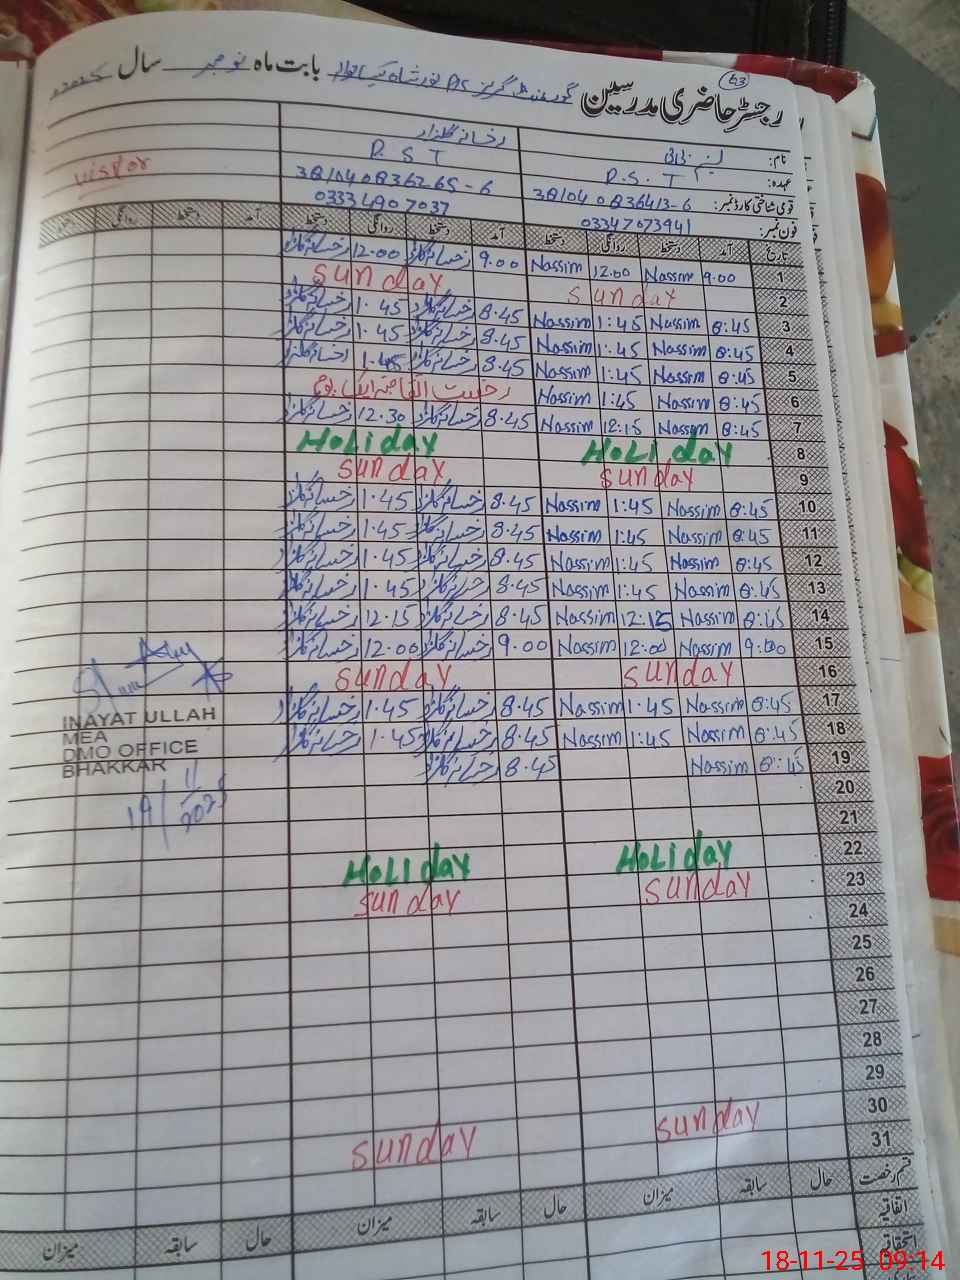 43
رجسٹر حاضری مدرسین گورنمنٹ گرلز P/S نور شاہ بابت ماہ نومبر سال 2025
نام: نسیم بی بی رخسانہ گلزار
عہدہ: P.S.T P S T visitor
قومی شناختی کارڈ نمبر: 38104 0836413-6 38104 0836265-6
فون نمبر: 03347073941 0333 4907037
تاریخ آمد دستخط روانگی دستخط آمد دستخط روانگی دستخط آمد دستخط روانگی دستخط
1 9.00 Nassim 12.00 Nassim 9.00 رخسانہ گلزار 12.00 رخسانہ گلزار
2 Sunday Sunday
3 8:45 Nassim 1:45 Nassim 8.45 رخسانہ گلزار 1.45 رخسانہ گلزار
4 8:45 Nassim 1:45 Nassim 8.45 رخسانہ گلزار 1.45 رخسانہ گلزار
5 8:45 Nassim 1:45 Nassim 8.45 رخسانہ گلزار 1.45 رخسانہ گلزار
6 8:45 Nassim 1:45 Nassim رخصت اتفاقیہ ایک یوم
7 8:45 Nassim 12:15 Nassim 8.45 رخسانہ گلزار 12.30 رخسانہ گلزار
8 HoLiday HoLiday
9 Sunday Sunday
10 8:45 Nassim 1:45 Nassim 8.45 رخسانہ گلزار 1.45 رخسانہ گلزار
11 8:45 Nassim 1:45 Nassim 8.45 رخسانہ گلزار 1.45 رخسانہ گلزار
12 8:45 Nassim 1:45 Nassim 8.45 رخسانہ گلزار 1.45 رخسانہ گلزار
13 8:45 Nassim 1:45 Nassim 8.45 رخسانہ گلزار 1.45 رخسانہ گلزار
14 8:45 Nassim 12:15 Nassim 8.45 رخسانہ گلزار 12.15 رخسانہ گلزار
15 9:00 Nassim 12:00 Nassim 9.00 رخسانہ گلزار 12.00 رخسانہ گلزار
16 Sunday Sunday
17 8:45 Nassim 1.45 Nassim 8.45 رخسانہ گلزار 1.45 رخسانہ گلزار
18 8:45 Nassim 1:45 Nassim 8.45 رخسانہ گلزار 1.45 رخسانہ گلزار
19 8:45 Nassim 8.45 رخسانہ گلزار
INAYAT ULLAH
MEA
DMO OFFICE
BHAKKAR
19/11/2025
20
21
22 HoLiday HoLiday
23 Sunday Sunday
24
25
26
27
28
29
30 Sunday Sunday
31
قسم رخصت حال سابقہ میزان حال سابقہ میزان حال سابقہ میزان
اتفاقیہ
استحقاقیہ
18-11-25 09:14